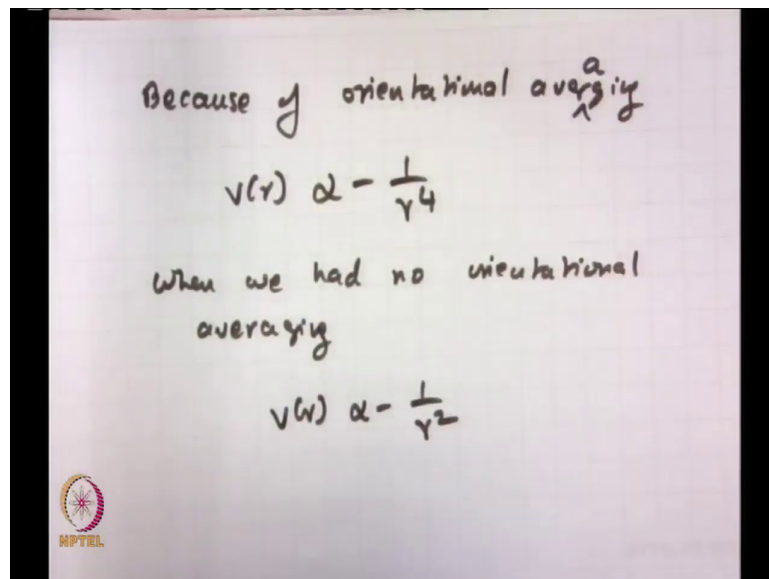 Because of orientational averaging
V(r) α - 1/r⁴
when we had no orientational
averaging
V(r) α - 1/r²
NPTEL